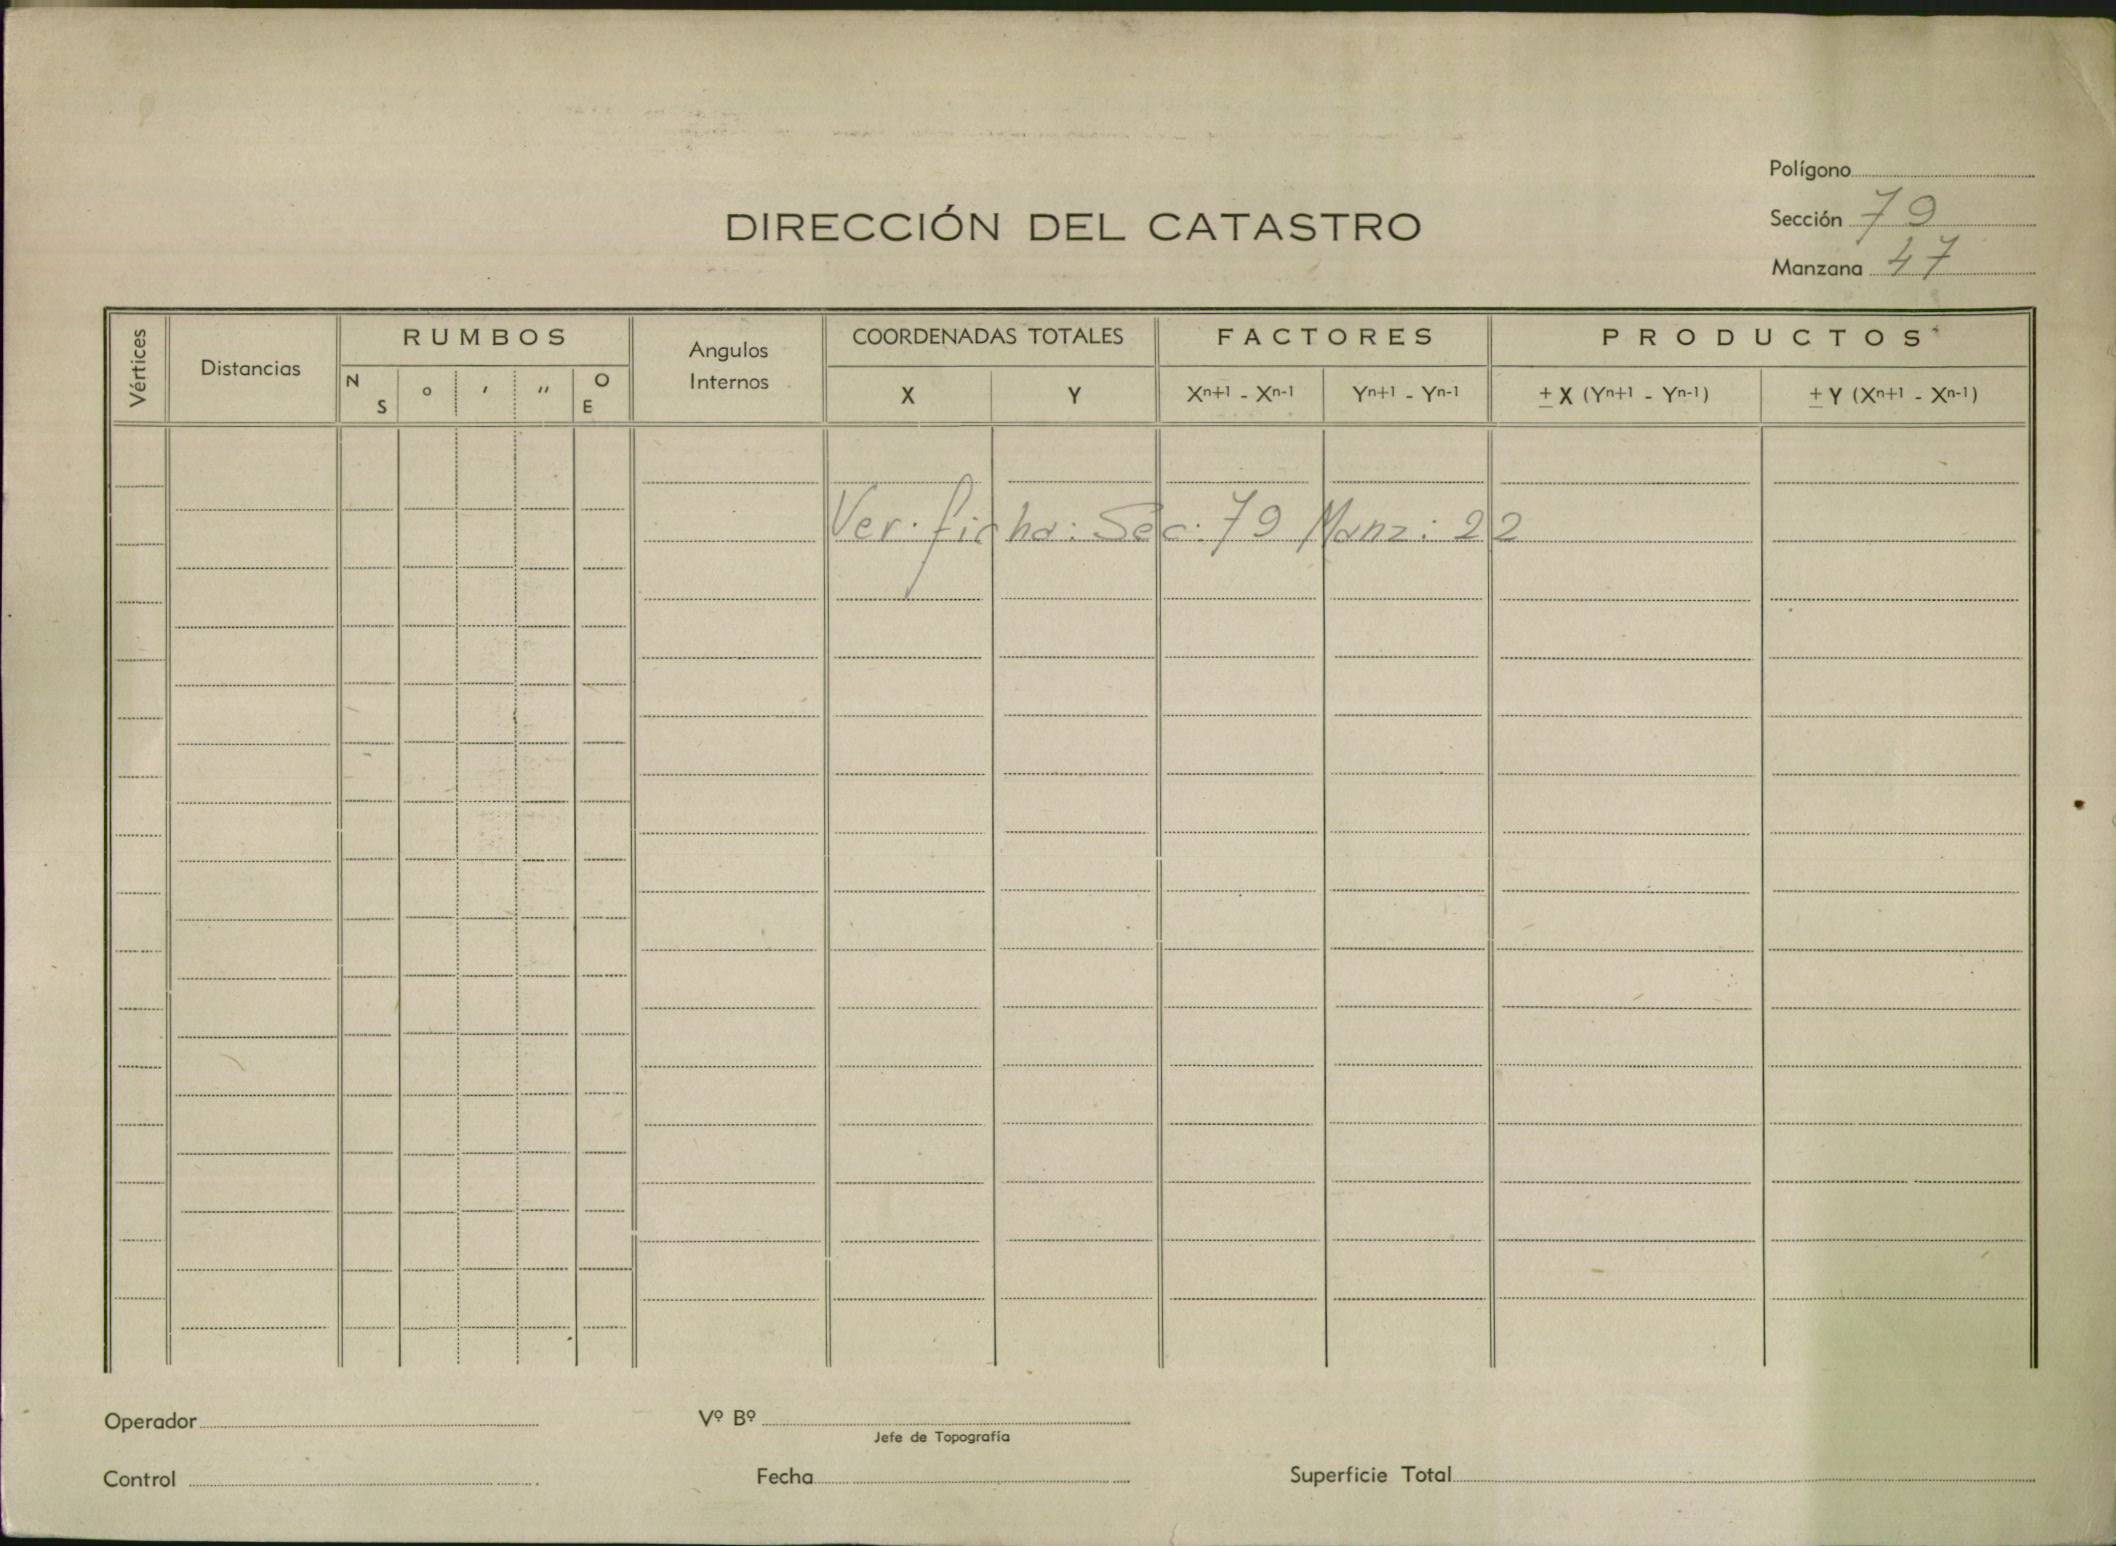 Polígono
DIRECCIÓN DEL CATASTRO
Sección 79
Manzana 47
Vértices
Distancias
RUMBOS
N S
o ′ ″
O E
Angulos
Internos
COORDENADAS TOTALES
X Y
FACTORES
Xn+1 - Xn-1 Yn+1 - Yn-1
PRODUCTOS
± X (Yn+1 - Yn-1) ± Y (Xn+1 - Xn-1)
Ver. ficha: Sec: 79 Manz: 22
Operador
Vº Bº
Jefe de Topografía
Control
Fecha
Superficie Total